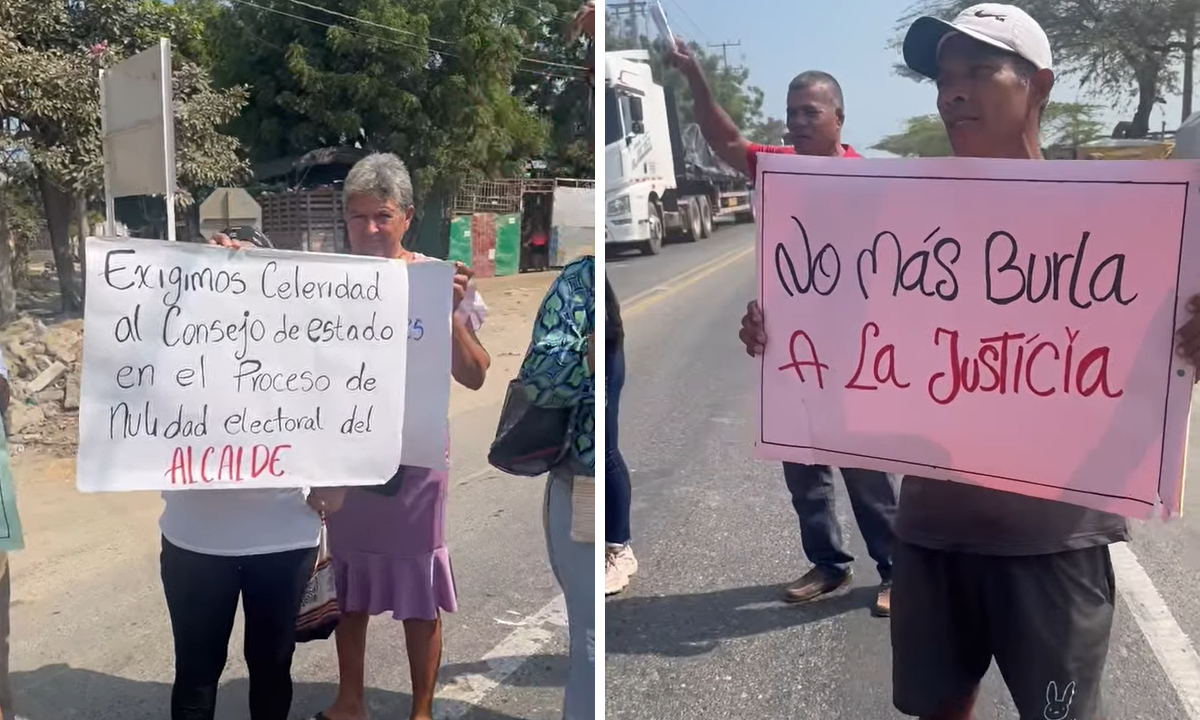 Exigimos Celeridad
al Consejo de estado
en el Proceso de
Nulidad electoral del
ALCALDE
es
No Más Burla
A La Justícia